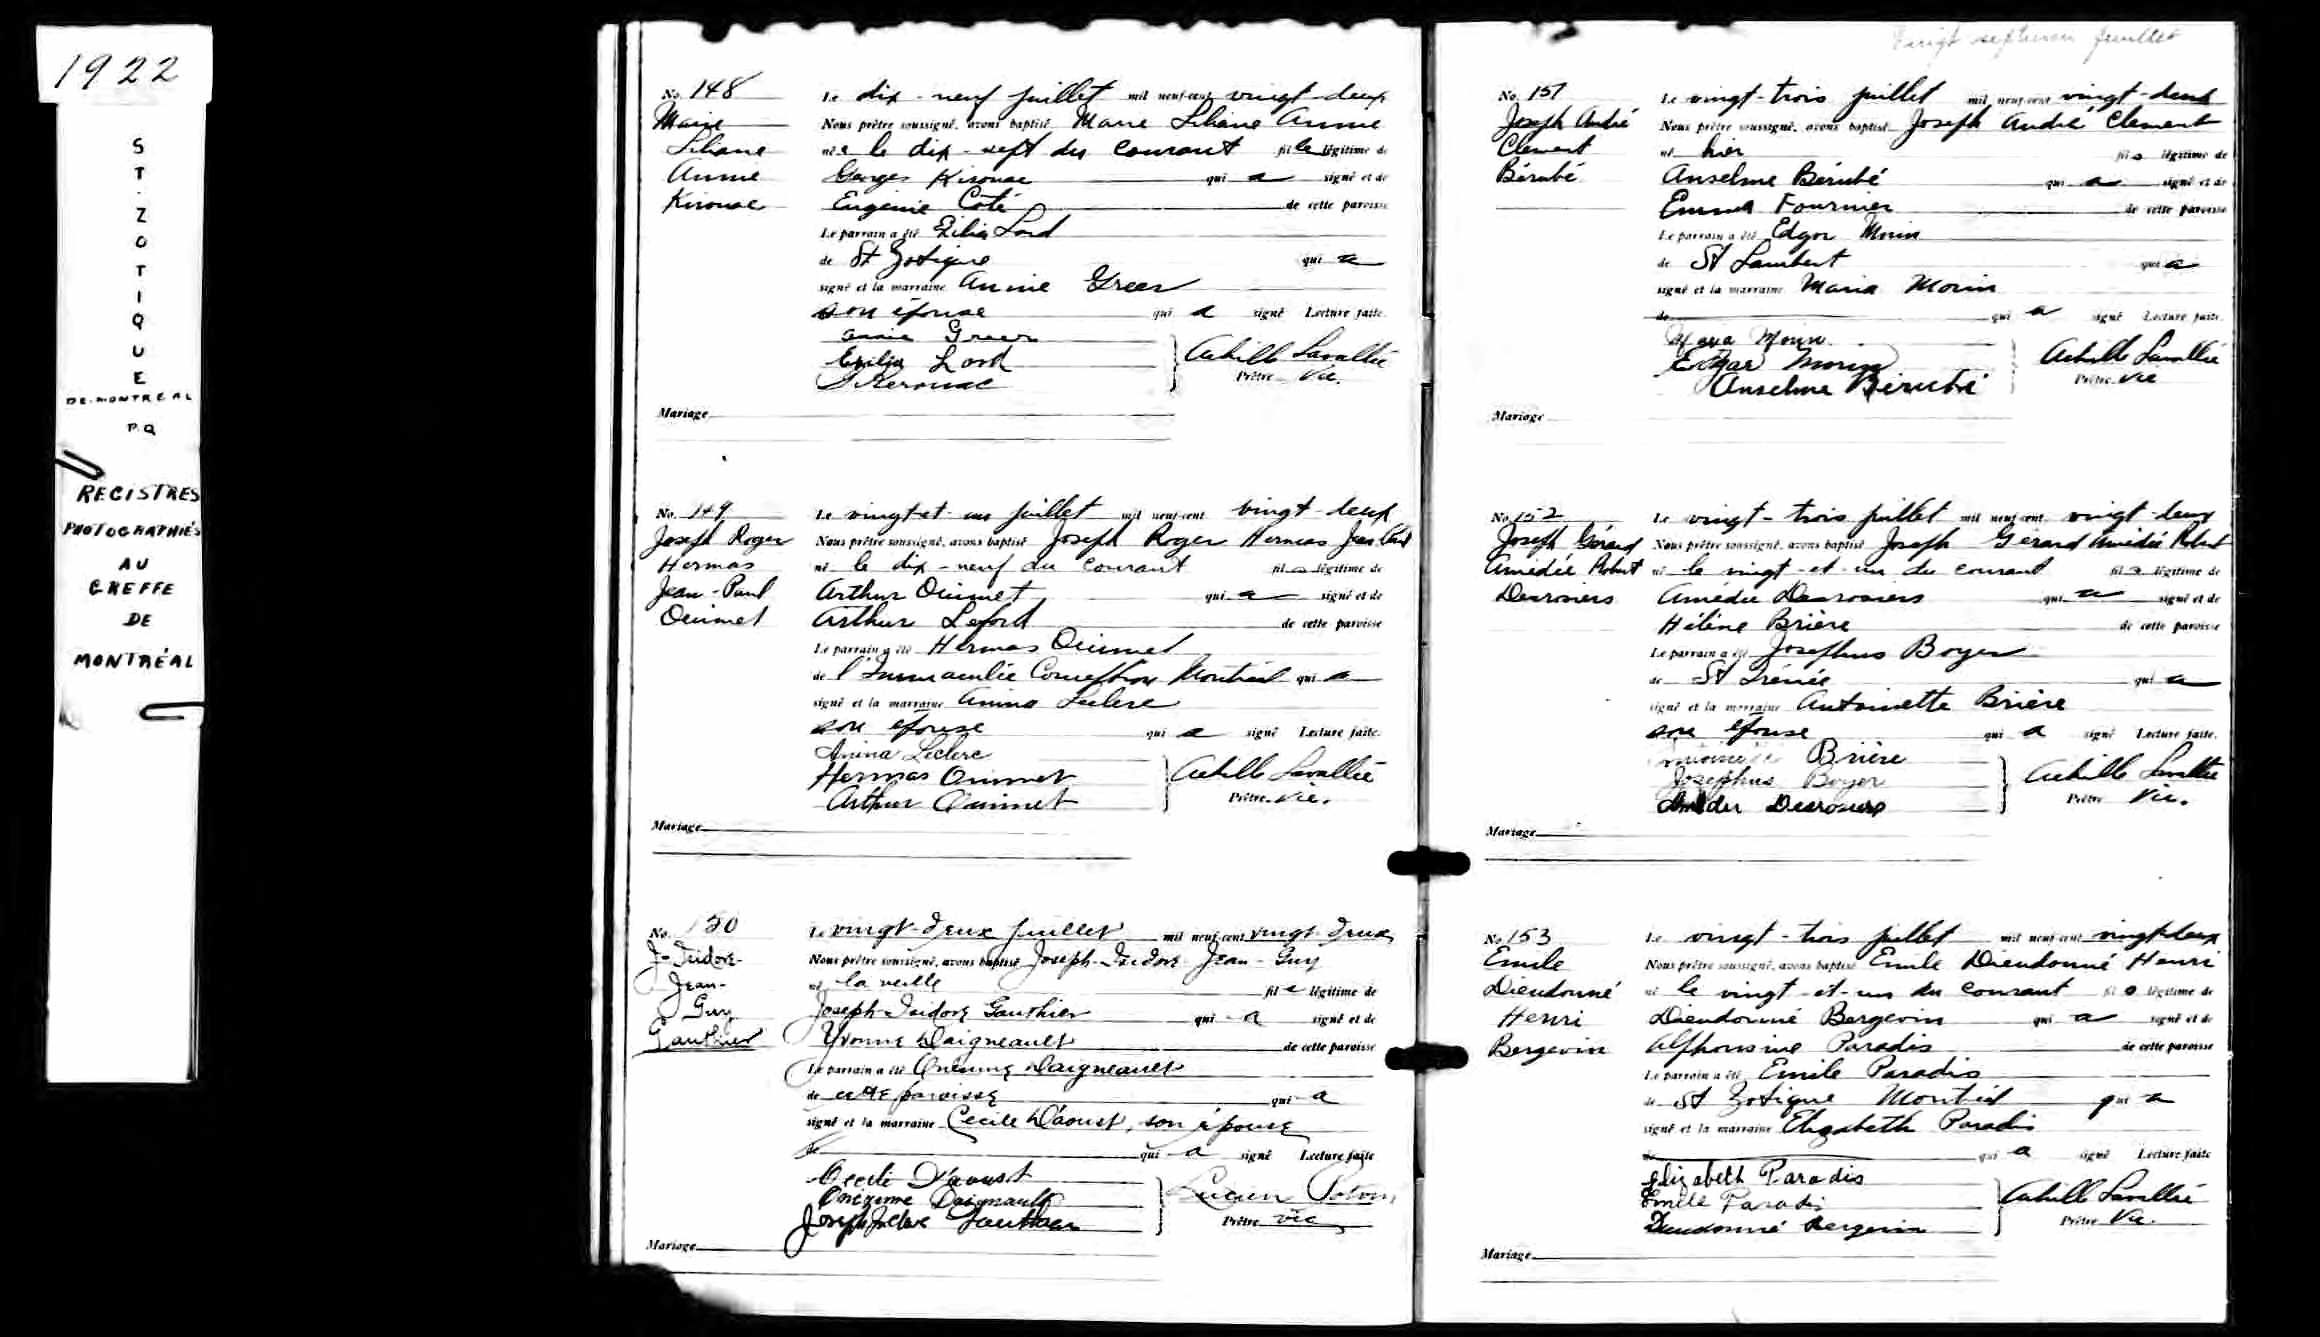 1922
ST. ZOTIQUE
DE MONTREAL
P.Q
REGISTRES
PHOTOGRAPHIÉS
AU
GREFFE
DE
MONTRÉAL
No. 148
Marie
Liliane
Annie
Kirouac
Le dix-neuf juillet mil neuf-cent vingt-deux
Nous prêtre soussigné, avons baptisé Marie Liliane Annie
née le dix-sept du courant fille légitime de
Georges Kirouac qui a signé et de
Eugénie Coté de cette paroisse
Le parrain a été Ezilia Lord
de St Zotique qui a
signé et la marraine Annie Greer
son épouse qui a signé Lecture faite.
Annie Greer
Ezilia Lord
Kerouac
Achille Lavallée
Prêtre Vic.
Mariage
No. 149
Joseph Roger
Hermas
Jean-Paul
Ouimet
Le vingt-et-un juillet mil neuf-cent vingt-deux
Nous prêtre soussigné, avons baptisé Joseph Roger Hermas Jean Paul
né le dix-neuf du courant fils légitime de
Arthur Ouimet qui a signé et de
Arthur Leford de cette paroisse
Le parrain a été Hermas Ouimet
de l'Immaculée Conception Montréal qui a
signé et la marraine Anina Leclerc
son épouse qui a signé Lecture faite.
Anina Leclerc
Hermas Ouimet
Arthur Ouimet
Achille Lavallée
Prêtre Vic.
Mariage
No. 150
J-Isidore-
Jean-
Guy
Gauthier
Le vingt-deux juillet mil neuf-cent vingt-deux
Nous prêtre soussigné, avons baptisé Joseph-Isidore Jean-Guy
né la veille fils légitime de
Joseph-Isidore Gauthier qui a signé et de
Yvonne Daigneault de cette paroisse
Le parrain a été Onésime Daigneault
de cette paroisse qui a
signé et la marraine Cecile D'aoust, son épouse
de qui a signé Lecture faite
Cecile D'aoust
Onézime Daignault
Joseph Isidore Gauthier
Lucien
Prêtre vic
Mariage
vingt juillet
No. 151
Joseph André
Clement
Bérubé
Le vingt-trois juillet mil neuf-cent vingt-deux
Nous prêtre soussigné, avons baptisé Joseph André Clement
né hier fils légitime de
Anselme Bérubé qui a signé et de
Emma Fournier de cette paroisse
Le parrain a été Edgar Morin
de St Lambert qui a
signé et la marraine Maria Morin
de qui a signé Lecture faite.
Morin
Edgar Morin
Anselme Bérubé
Achille Lavallée
Prêtre Vic
Mariage
No. 152
Joseph Gérard
Amédée Robert
Desrosiers
Le vingt-trois juillet mil neuf-cent vingt-deux
Nous prêtre soussigné, avons baptisé Joseph Gérard Amédée Robert
né le vingt-et-un du courant fils légitime de
Amédée Desrosiers qui a signé et de
Hélène Brière de cette paroisse
Le parrain a été Josephus Boyer
de St Irénée qui a
signé et la marraine Antoinette Brière
son épouse qui a signé Lecture faite.
Antoinette Brière
Josephus Boyer
Amédée Desrosiers
Achille Lavallée
Prêtre Vic.
Mariage
No. 153
Emile
Dieudonné
Henri
Bergevin
Le vingt-trois juillet mil neuf-cent vingt-deux
Nous prêtre soussigné, avons baptisé Emile Dieudonné Henri
né le vingt-et-un du courant fils légitime de
Dieudonné Bergevin qui a signé et de
Alphonsine Paradis de cette paroisse
Le parrain a été Emile Paradis
de St Zotique Montréal qui a
signé et la marraine Elizabeth Paradis
de qui a signé Lecture faite
Elizabeth Paradis
Emile Paradis
Dieudonné Bergevin
Achille Lavallée
Prêtre Vic.
Mariage